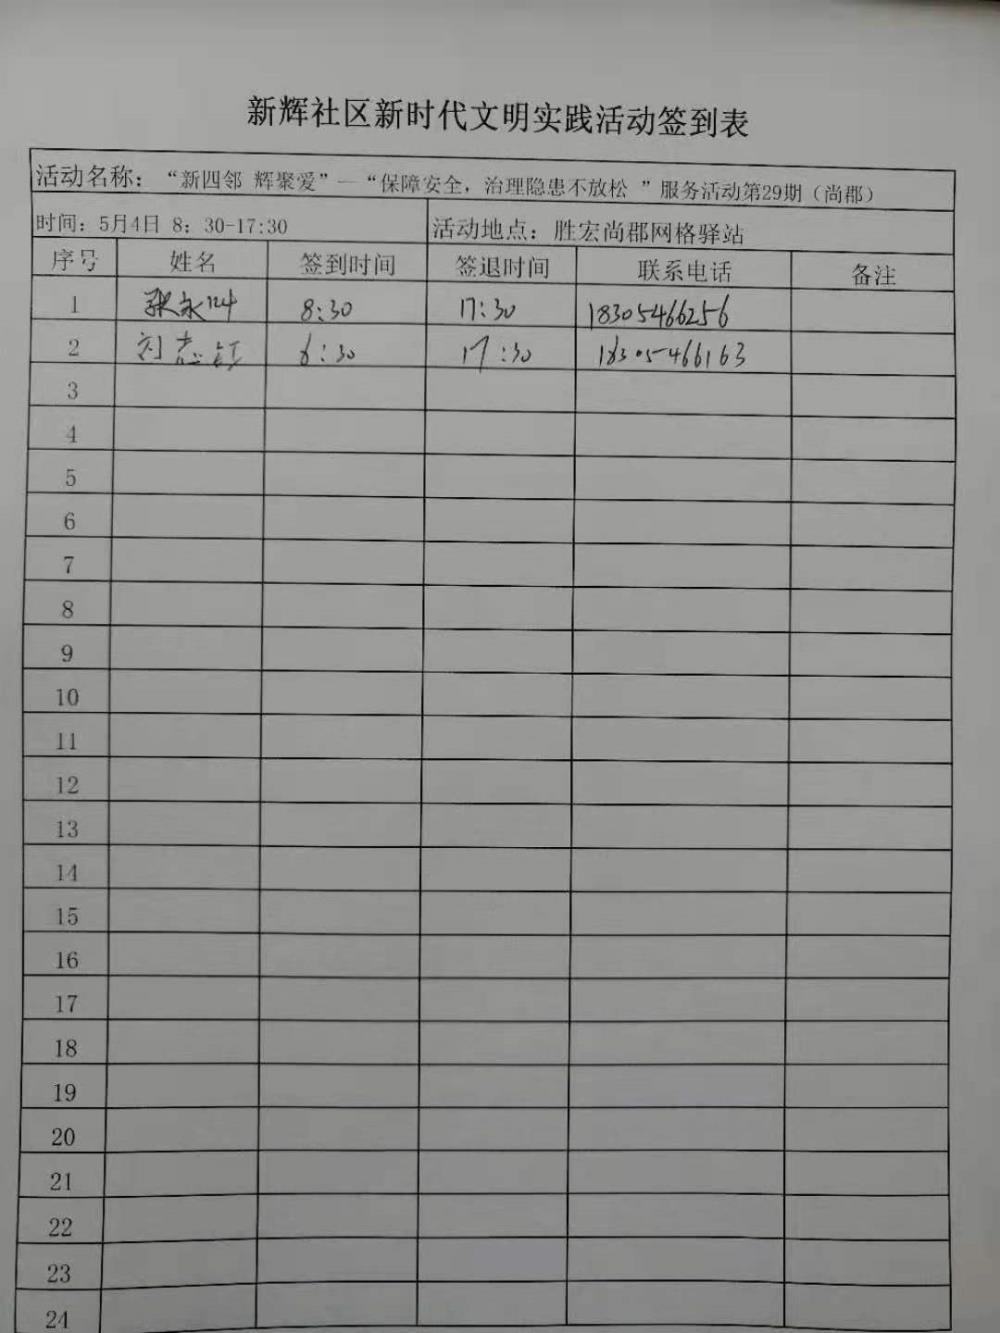 新辉社区新时代文明实践活动签到表
活动名称：“新四邻 辉聚爱”—“保障安全，治理隐患不放松 ”服务活动第29期（尚郡）
时间：5月4日 8：30-17:30 活动地点：胜宏尚郡网格驿站
序号 姓名 签到时间 签退时间 联系电话 备注
1 张永 8:30 17:30 18305466256
2 刘志 8:30 17:30 18305466163
3
4
5
6
7
8
9
10
11
12
13
14
15
16
17
18
19
20
21
22
23
24